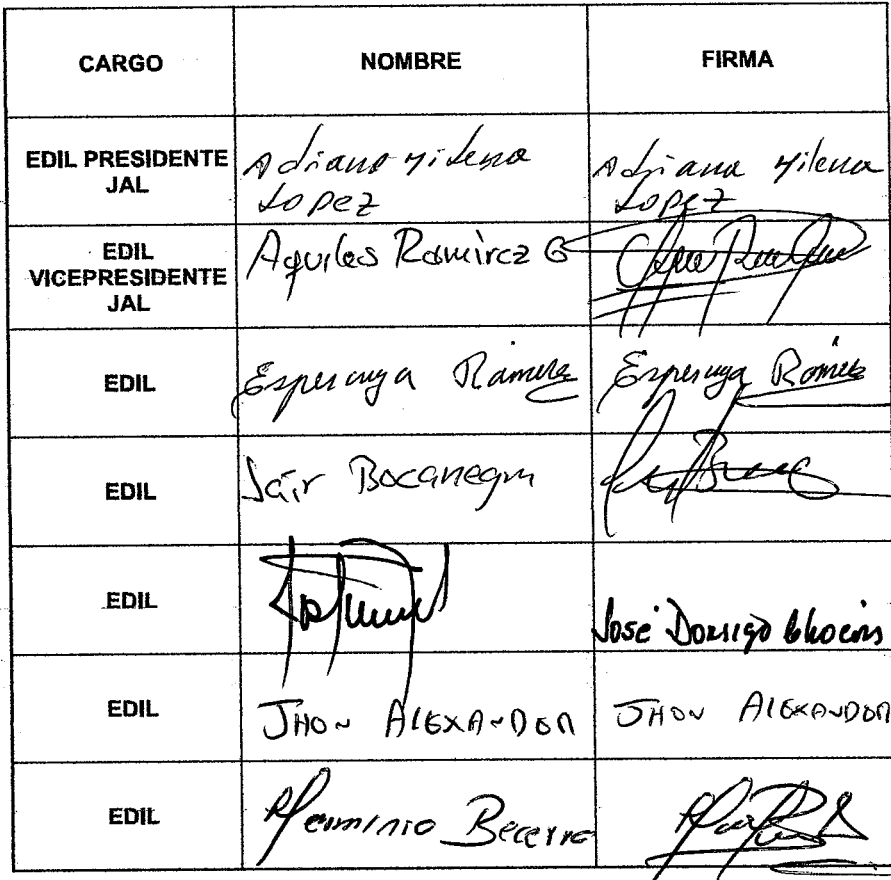 CARGO NOMBRE FIRMA
EDIL PRESIDENTE JAL Adriana Milena Lopez Adriana Milena Lopez
EDIL VICEPRESIDENTE JAL Aquiles Ramirez G
EDIL Esperanza Ramirez Esperanza Ramirez
EDIL Jair Bocanegra
EDIL José Domingo
EDIL JHON ALEXANDER JHON ALEXANDER
EDIL Herminio Becerra